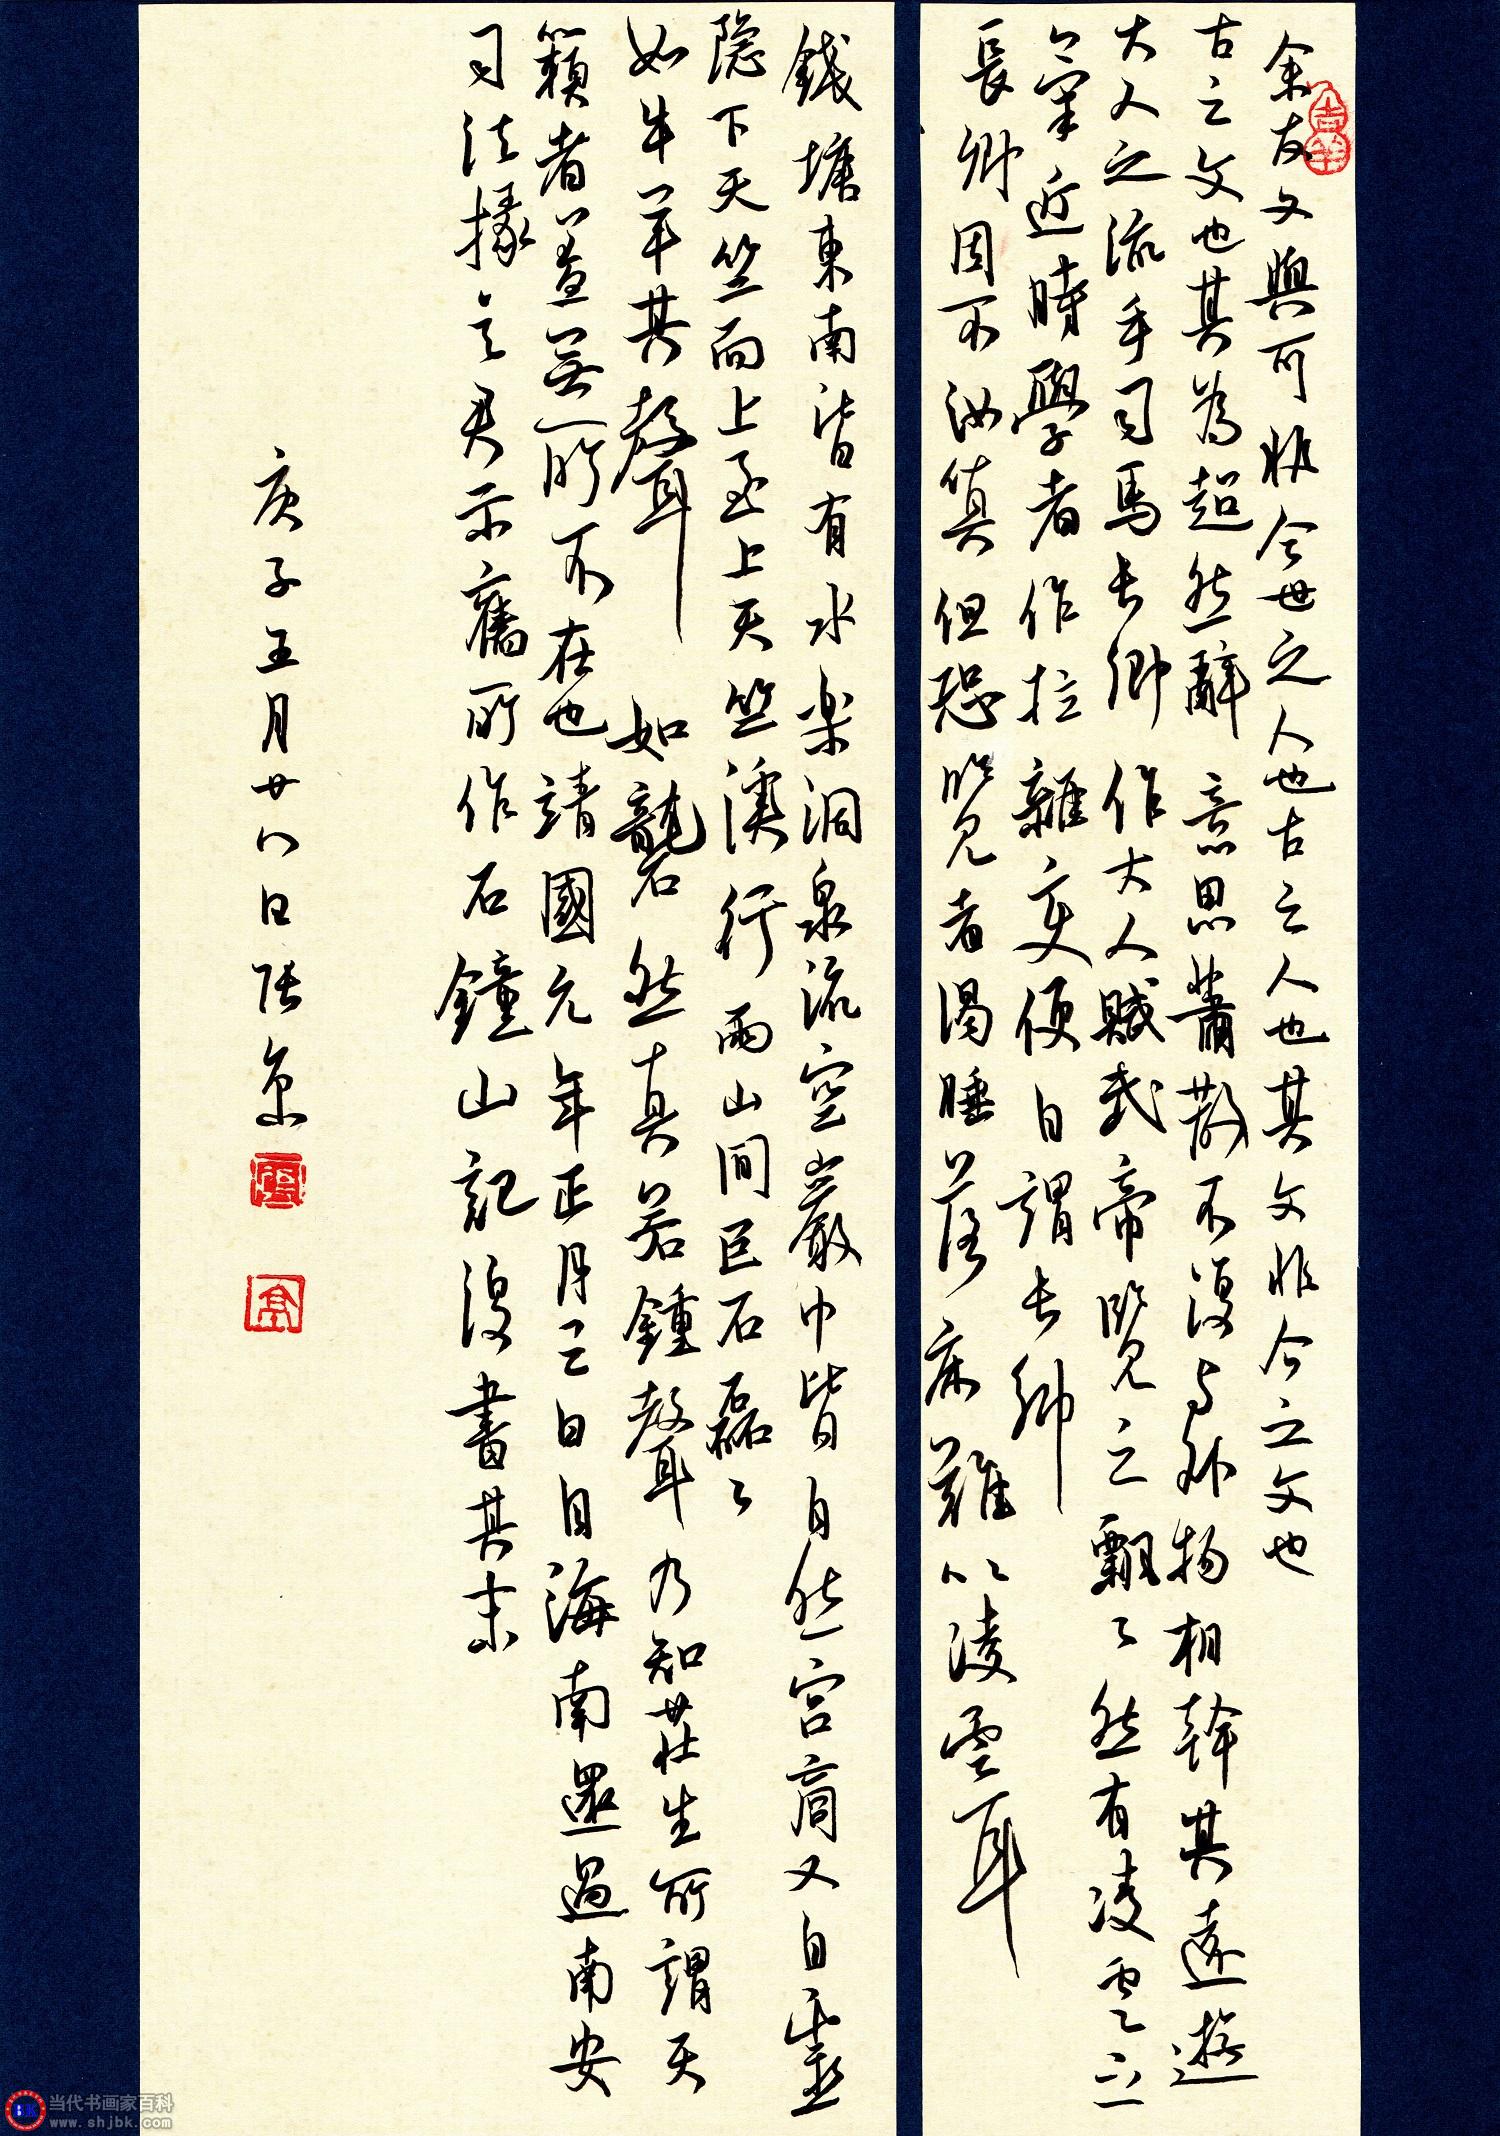 余友文與可非今世之人也古之人也其文非今之文也
古之文也其為超然辭意思蕭散不復与外物相幹其遠遊
大人之流乎司馬長卿作大人賦武帝覽之飄々然有凌雲之
氣近時學者作拉雜變便自謂長卿
長卿固不汝嗔但恐覽者渴睡落床難以凌雲耳
錢塘東南皆有水樂洞泉流空巖中皆自然宮商又自靈
隱下天竺而上至上天竺溪行兩山間巨石磊々
如牛羊其聲如礱然真若鍾聲乃知莊生所謂天
籟者蓋無所不在也靖國元年正月三日自海南還過南安
司法掾吳君示舊所作石鐘山記復書其末
庚子五月廿八日張
当代书画家百科
www.shjbk.com